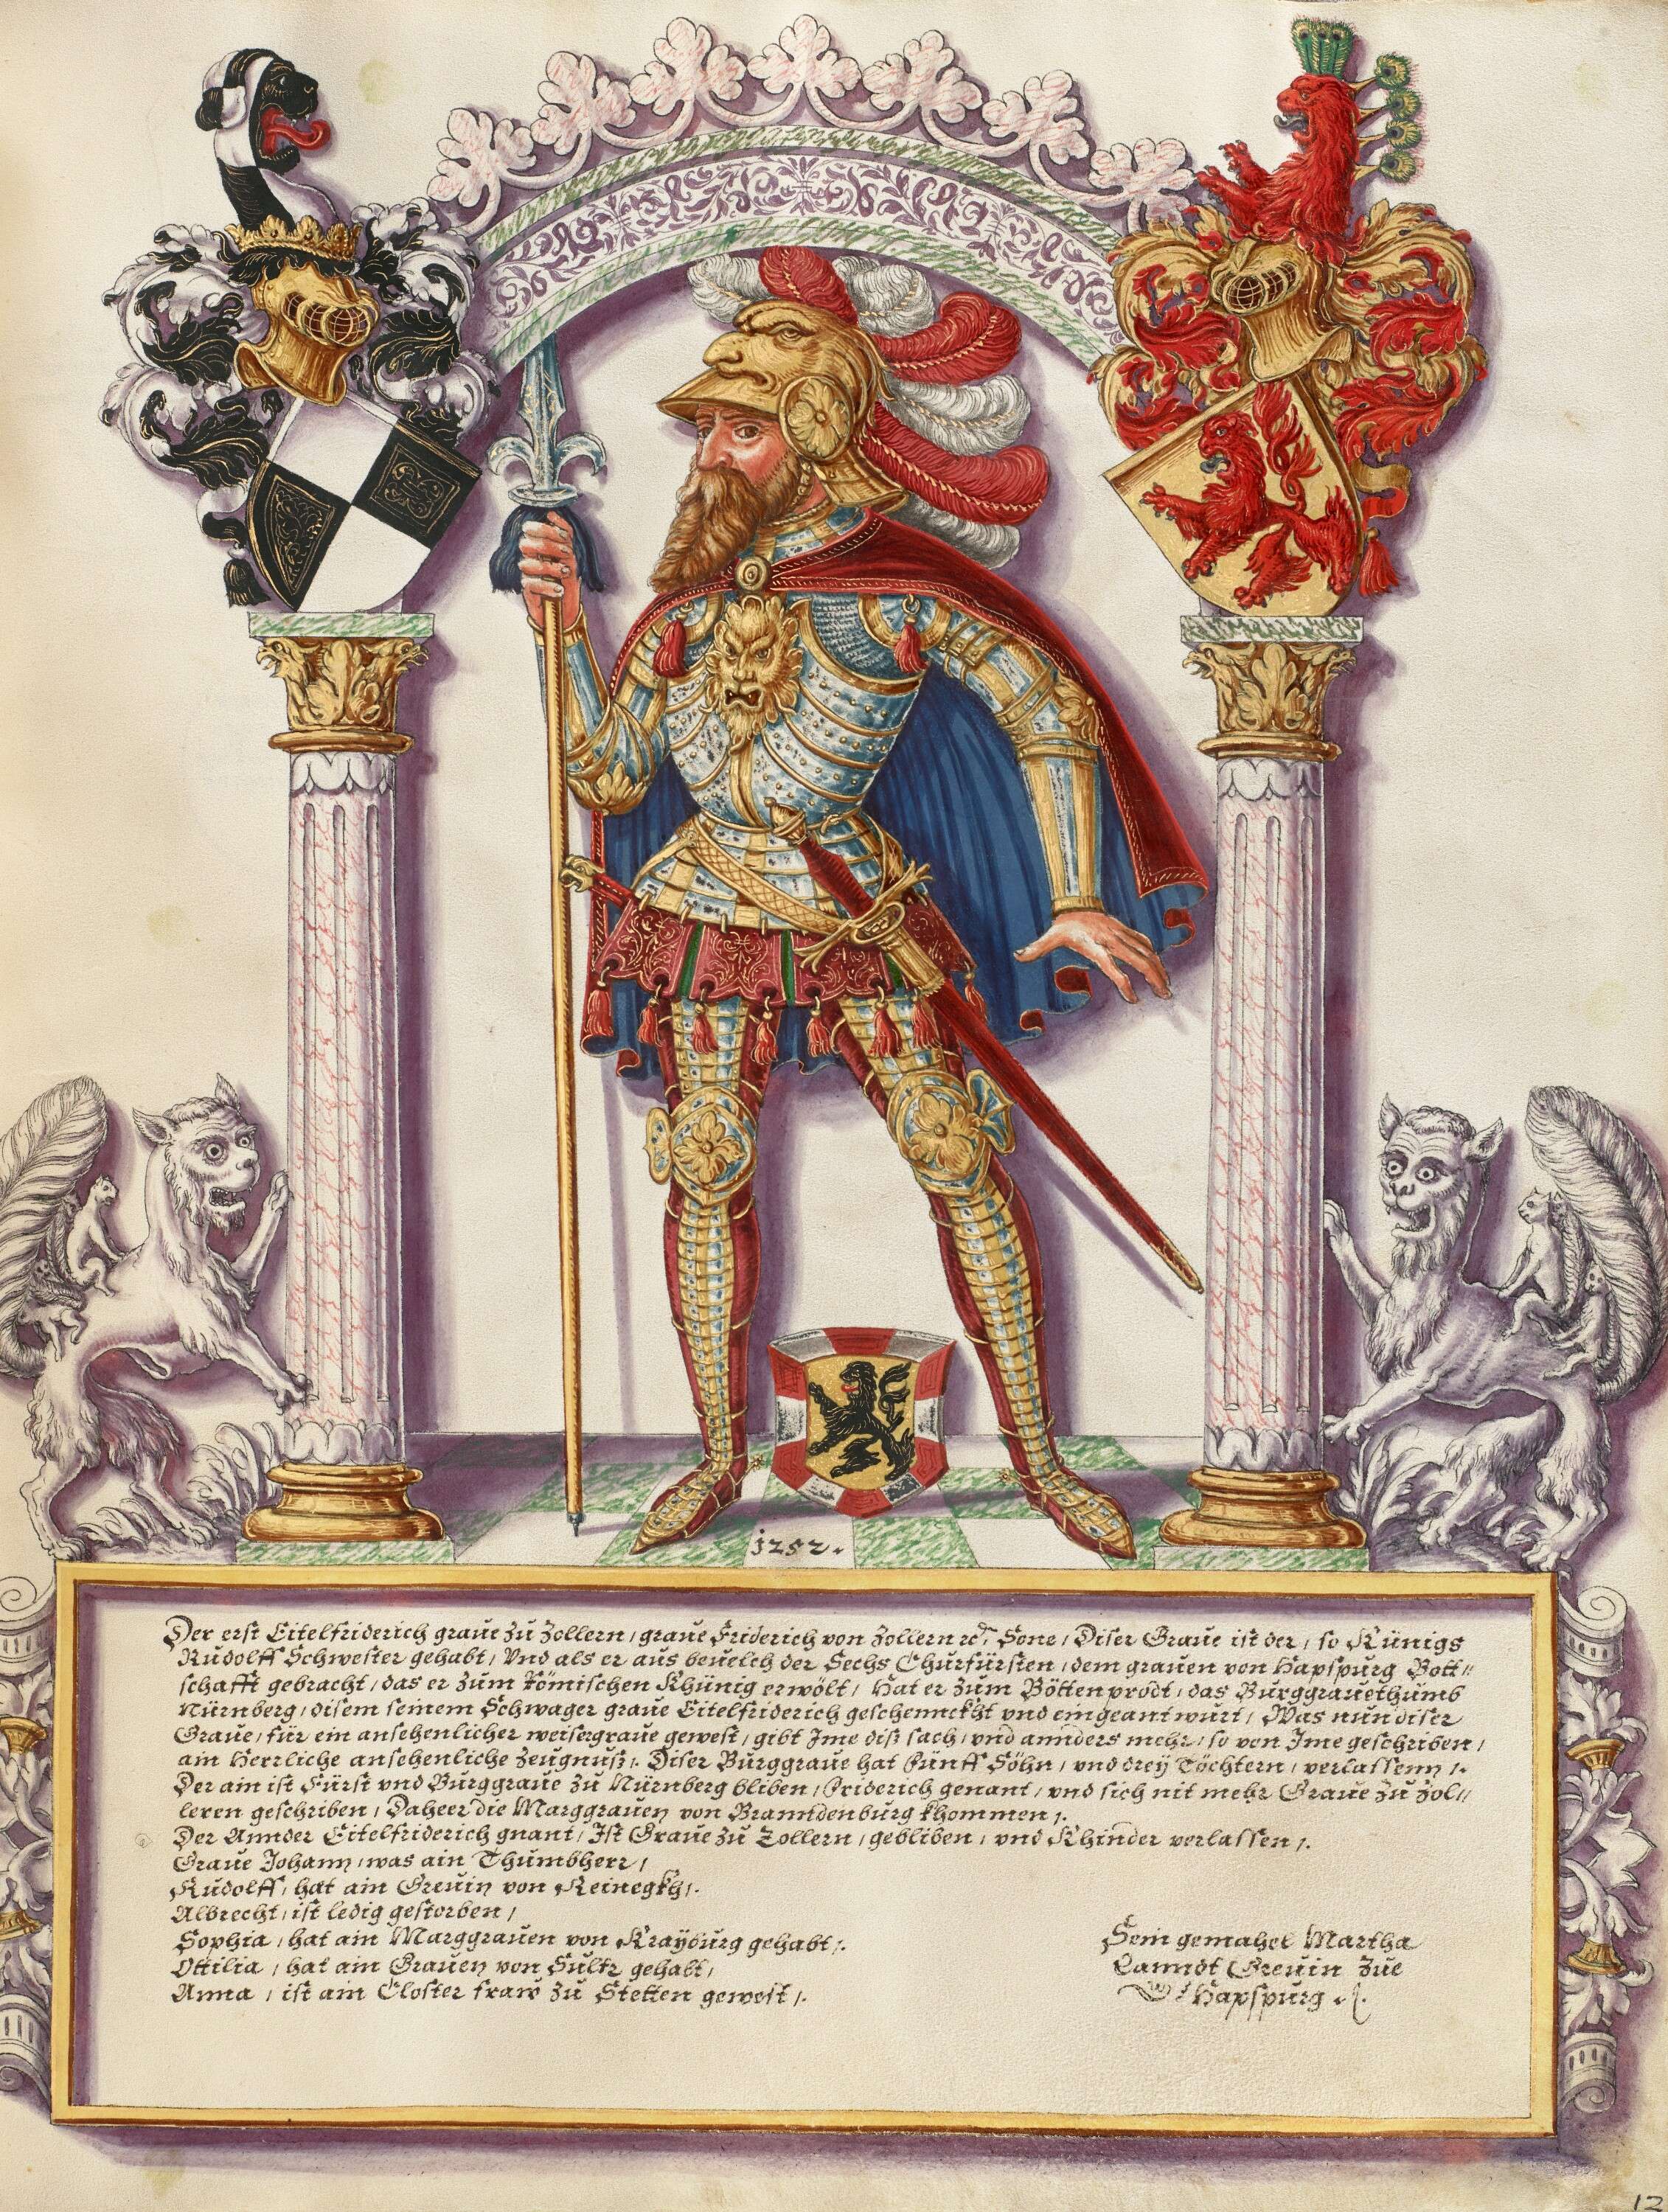 1252.
Der erst Eitelfriderich graue zu Zollern / graue Friderich von Zollern rc. Sone / Diser Graue ist der / so Künigs
Rudolff Schwester gehabt / Vnd als er aus beuelch der Sechs Churfürsten / dem grauen von Hapspurg Bott=
schafft gebracht / das er zum Römischen Khünig erwölt / Hat er zum Böttenprodt / das Burggrauethumb
Nürnberg / disem seinem Schwager graue Eitelfriderich geschennckht vnd eingeantwurt / Was nun diser
Graue / für ein ansehenlicher weiser graue gewest / gibt Ime diß sach / vnd annders mehr / so von Ime geschriben /
ain Herrliche ansehenliche Zeugnuß /. Diser Burggraue hat Fünff Söhn / vnd drey Töchtern / verlassenn /.
Der ain ist Fürst vnd Burggraue zu Nürnberg bliben / Friderich genant / vnd sich nit mehr Graue zu Zol//
leren geschriben / Daheer die Marggrauen von Branndenburg khommen /.
Der Annder Eitelfriderich gnant / Ist Graue zu Zollern / gebliben / vnd Khinder verlassen /.
Graue Johann / was ain Thumbherr /
Rudolff / hat ain Greuin von Reinegkh /.
Albrecht / ist ledig gestorben /
Sophia / hat ain Marggrauen von Krayburg gehabt /.
Ottilia / hat ain Grauen von Sultz gehabt /
Anna / ist ain Closter fraw zu Stetten gewest /.
Sein gemahel Martha
Lanndt Greuin zue
Hapspurg /.
13